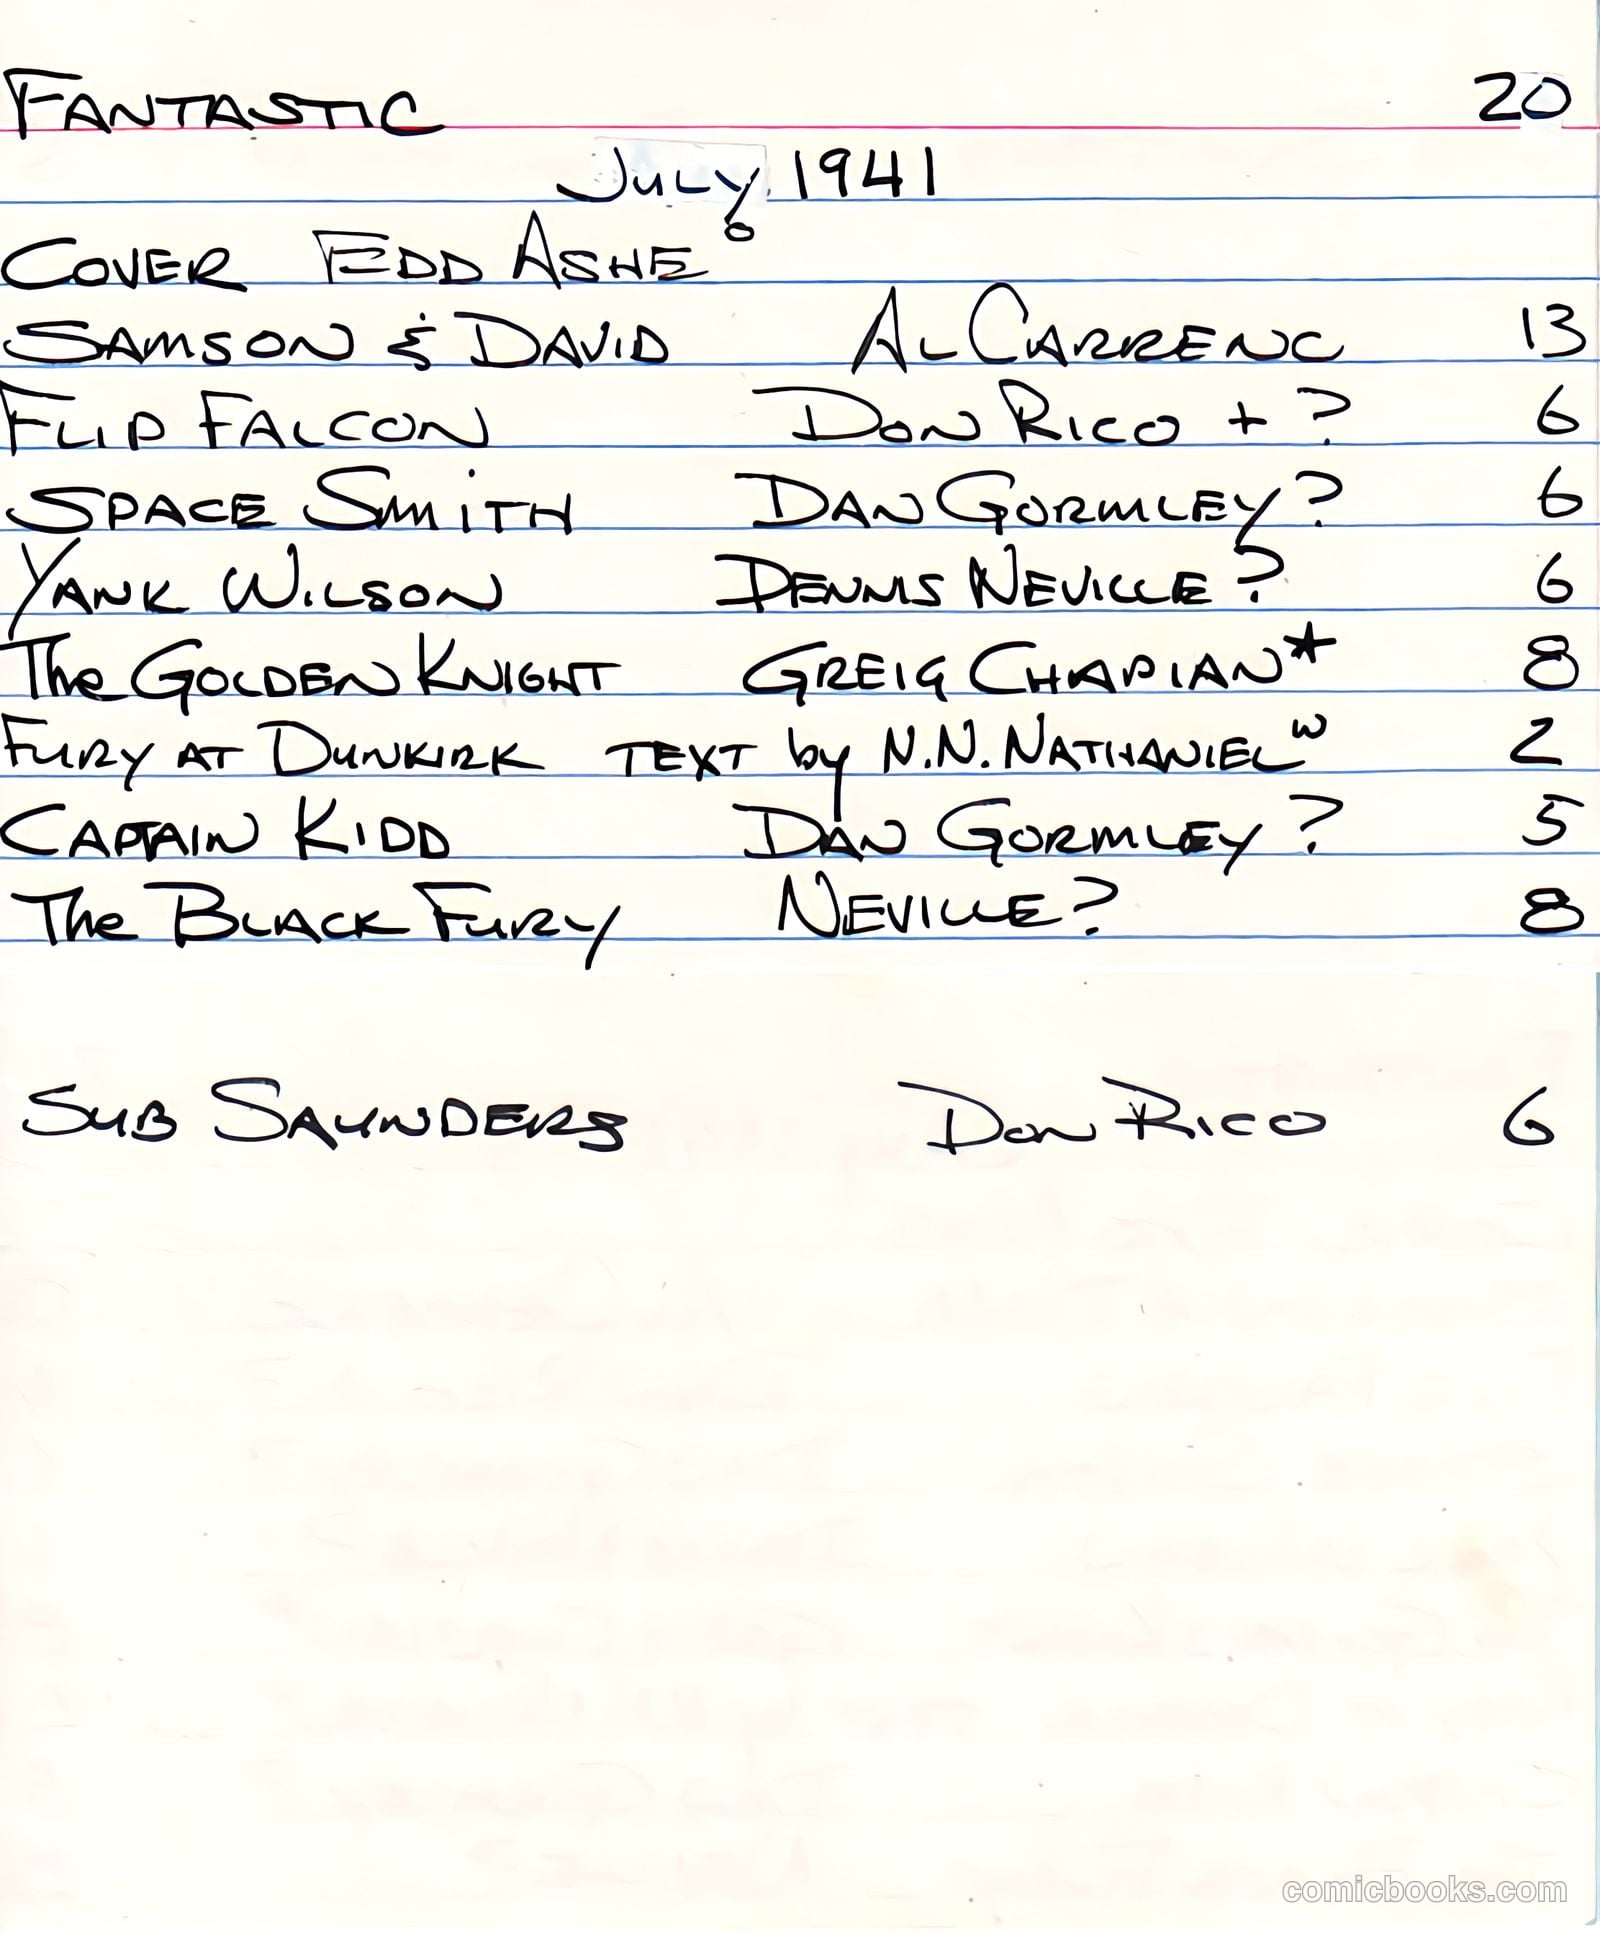 FANTASTIC 20
July 1941
COVER EDD ASHE
SAMSON & DAVID AL CARRENO 13
FLIP FALCON DON RICO + ? 6
SPACE SMITH DAN GORMLEY? 6
YANK WILSON DENNIS NEVILLE? 6
The GOLDEN KNIGHT GREIG CHAPIAN* 8
FURY AT DUNKIRK TEXT by N.N. NATHANIEL w 2
CAPTAIN KIDD DAN GORMLEY? 5
The BLACK FURY NEVILLE? 8
SUB SAUNDERS DON RICO 6
comicbooks.com